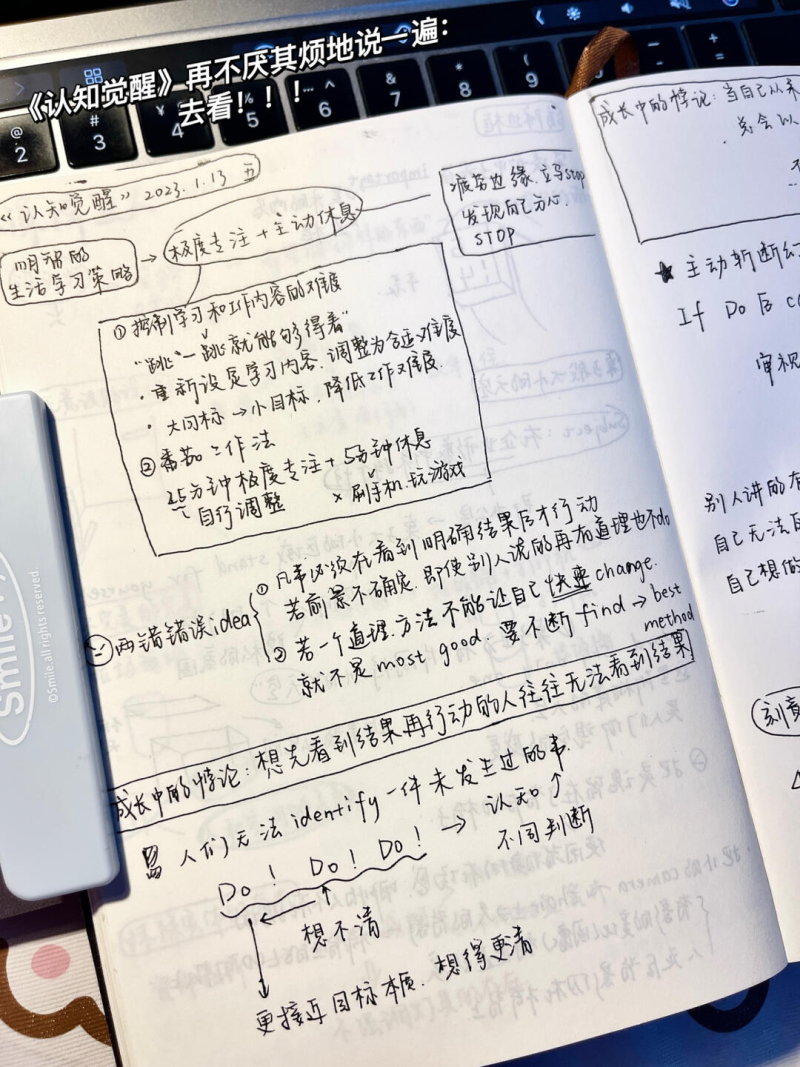 《认知觉醒》再不厌其烦地说一遍：
去看！！！
@ 2
# 3
¥ 4
5
6
& 7
* 8
( 9
) 0
- _
+ =
《认知觉醒》 2023.1.13 五
明智的
生活学习策略
→ 极度专注+主动休息
疲劳边缘，立马stop
发现自己分心
STOP
① 控制学习和工作内容的难度
“跳”一跳就能够得着”
· 重新设定学习内容，调整为合适难度
· 大目标→小目标，降低工作难度.
② 番茄工作法
25分钟极度专注+5分钟休息
自行调整
× 刷手机.玩游戏
两错错误idea
① 凡事必须在看到明确结果后才行动
若前景不确定.即使别人说的再有道理也不do
② 若一个道理.方法不能让自己快速change.
就不是most good. 要不断find→best
method
成长中的悖论：想先看到结果再行动的人往往无法看到结果
人们无法identify一件未发生过的事
Do！ Do！ Do！
→ 认知↑
不同判断
想不清
更接近目标本质.想得更清
成长中的悖论：当自己从
总会以
★ 主动斩断
If Do 后
审视
别人讲的有
自己无法
自己想的
刻意
Smile
©Smile.all rights reserved